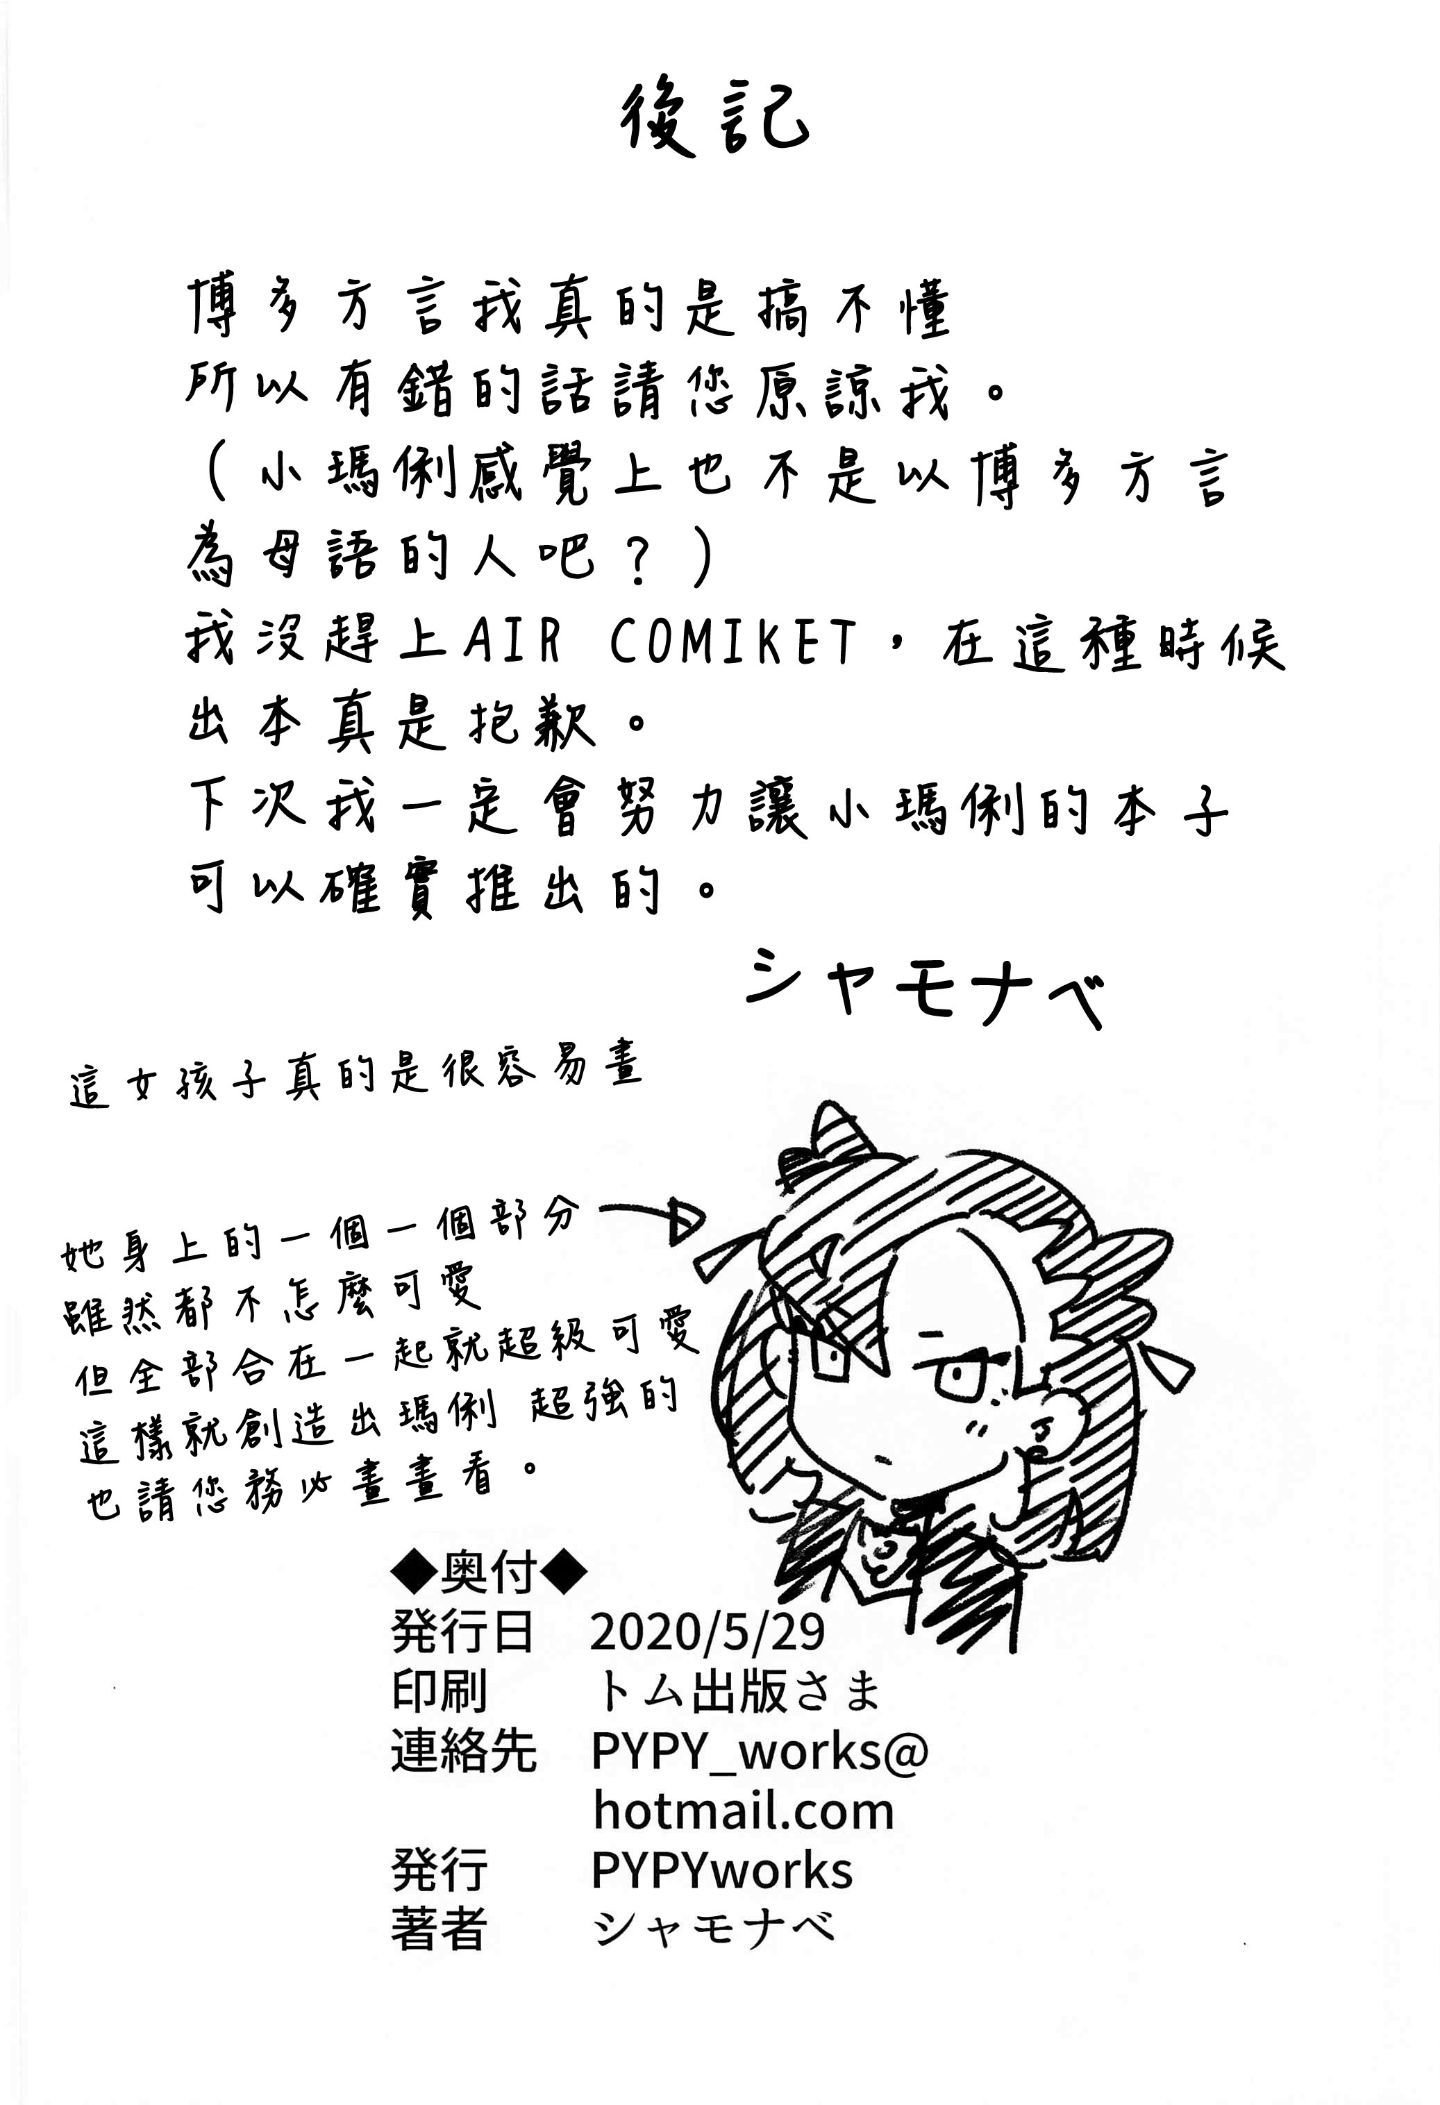 後記
博多方言我真的是搞不懂
所以有錯的話請您原諒我。
(小瑪俐感覺上也不是以博多方言
為母語的人吧?)
我沒趕上AIR COMIKET,在這種時候
出本真是抱歉。
下次我一定會努力讓小瑪俐的本子
可以確實推出的。
シャモナベ
這女孩子真的是很容易畫
她身上的一個一個部分
雖然都不怎麼可愛
但全部合在一起就超級可愛
這樣就創造出瑪俐 超強的
也請您務必畫畫看。
◆奥付◆
発行日 2020/5/29
印刷 トム出版さま
連絡先 PYPY_works@
hotmail.com
発行 PYPYworks
著者 シャモナベ